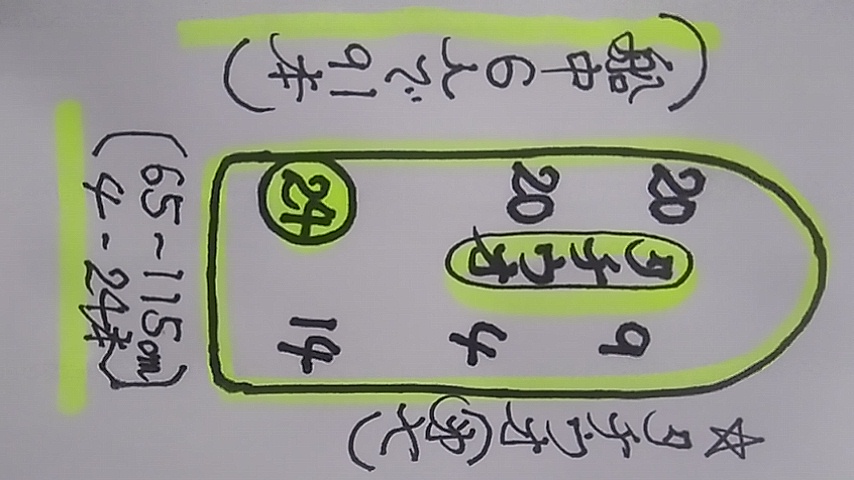 ☆タチウオ(第七)
20 9
タチウオ
20 4
24 14
(船中6人で91本)
(65~115cm
4-24本)